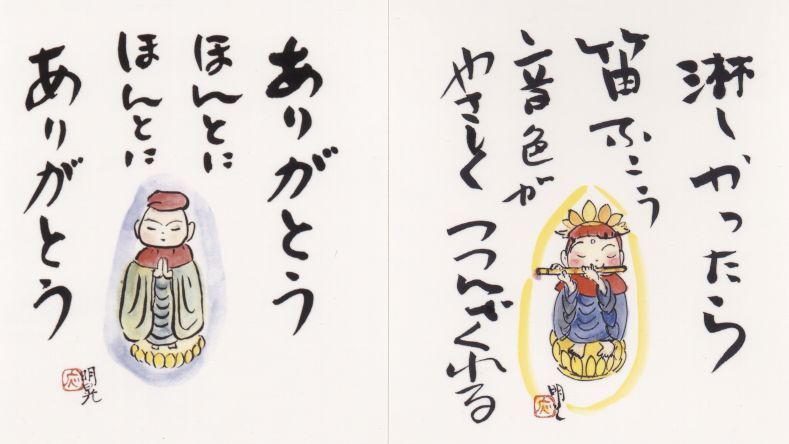 淋しかったら
笛ふこう
音色が
やさしく
つつんでくれる
ありがとう
ほんとに
ほんとに
ありがとう